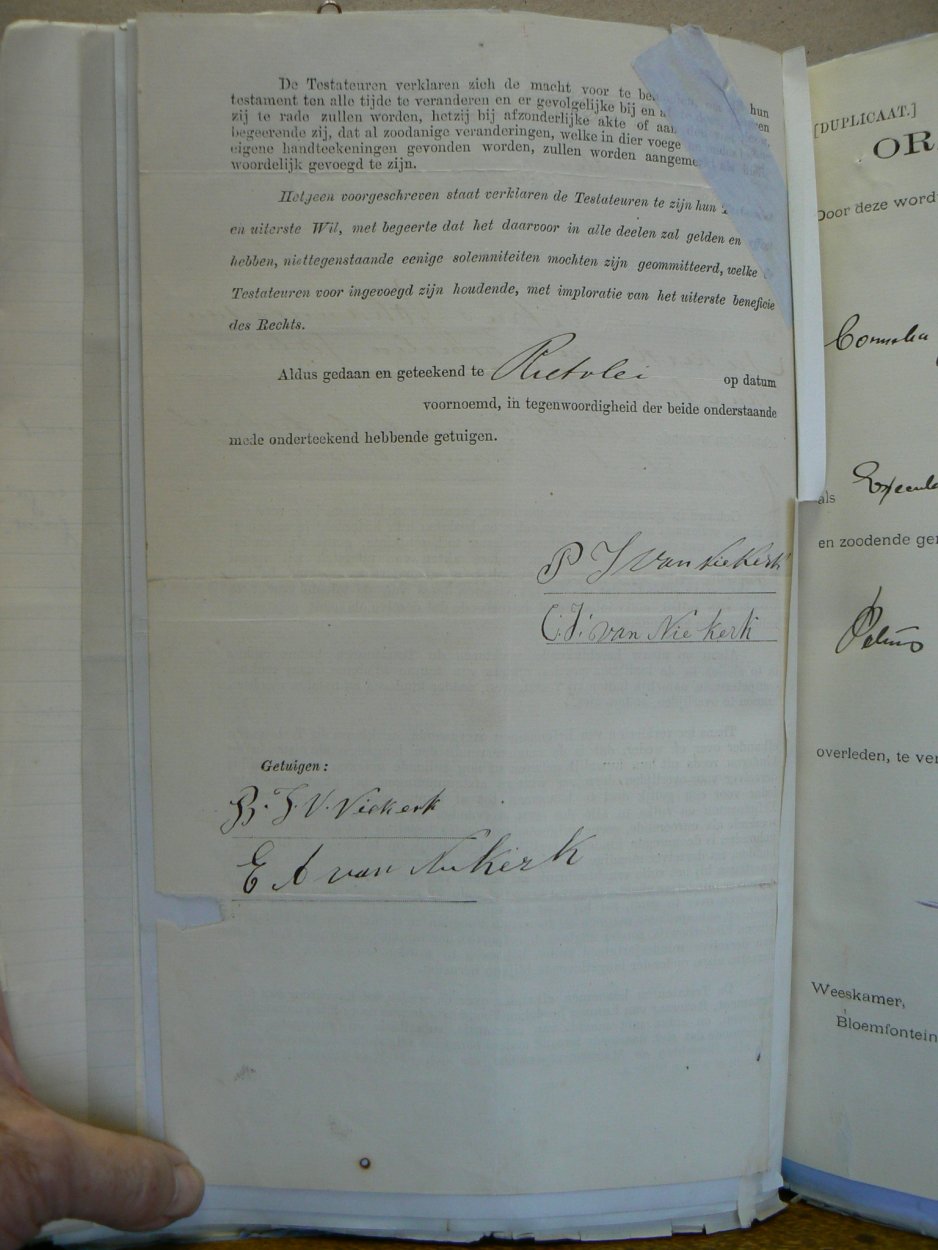 De Testateuren verklaren zich de macht voor te hun
testament ten alle tijde te veranderen en er gevolgelijke bij en
zij te rade zullen worden, hetzij bij afzonderlijke akte of aan
begeerende zij, dat al zoodanige veranderingen, welke in dier voege
eigene handteekeningen gevonden worden, zullen worden aangeme
woordelijk gevoegd te zijn.
Hetgeen voorgeschreven staat verklaren de Testateuren te zijn hun
en uiterste Wil, met begeerte dat het daarvoor in alle deelen zal gelden en
hebben, niettegenstaande eenige solemniteiten mochten zijn geommitteerd, welke
Testateuren voor ingevoegd zijn houdende, met imploratie van het uiterste beneficie
des Rechts.
Aldus gedaan en geteekend te Rietvlei op datum
voornoemd, in tegenwoordigheid der beide onderstaande
mede onderteekend hebbende getuigen.
P J van Niekerk
C. J. van Niekerk
Getuigen:
B. J. V. Niekerk
E A van Niekerk
[DUPLICAAT.]
OR
Door deze word
Cornelia
als
en zoodende ger
Petrus
overleden, te ver
Weeskamer,
Bloemfontein